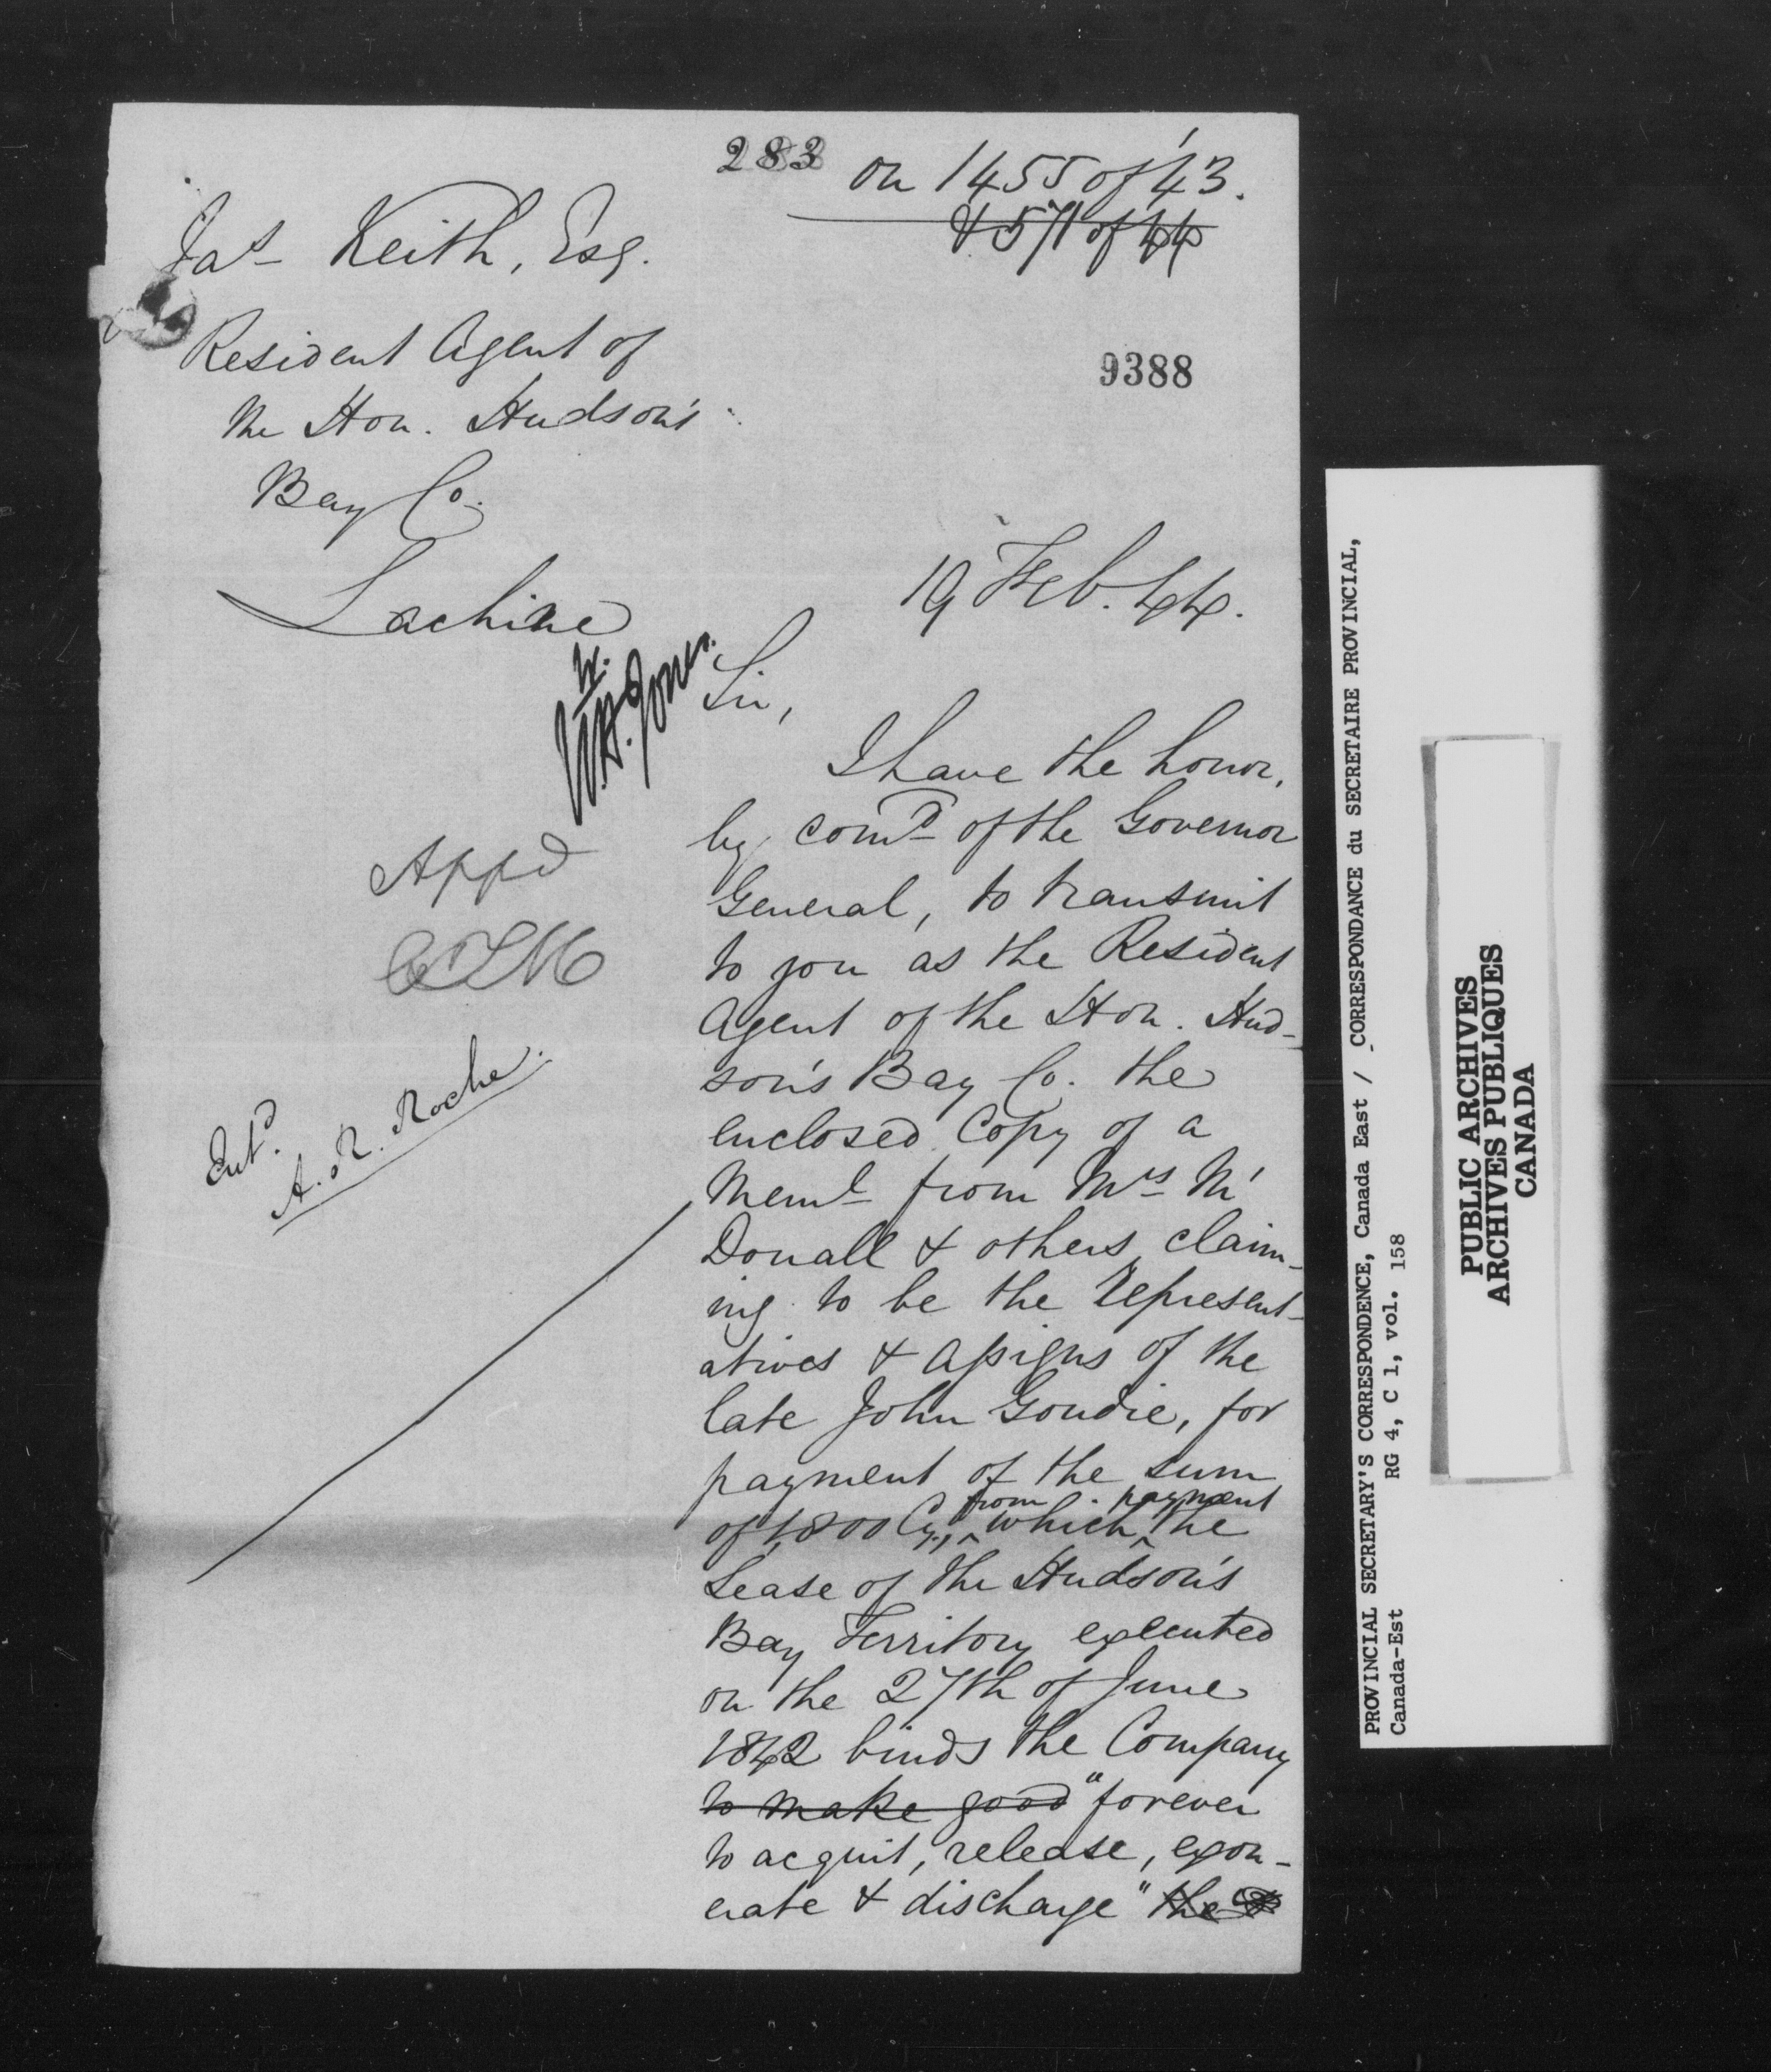 283
on 1455 of '43.
& 571 of 44
Jas Keith, Esq.
Resident Agent of
the Hon. Hudson's
Bay Co.
Lachine
9388
19 Feb. 44.
W.H. Jones.
Sir,
I have the honor,
by comd of the Governor
General, to transmit
to you as the Resident
Agent of the Hon. Hud-
son's Bay Co. the
enclosed Copy of a
Meml from Mrs M'
Donall & others, claim-
ing to be the represent-
atives & assigns of the
late John Goudie, for
payment of the sum
of 1,800 Cy., from which payment the
Lease of the Hudson's
Bay Territory executed
on the 27th of June
1842 binds the Company
to make good "forever
to acquit, release, exon-
erate & discharge" the
Appd
Entd.
A. R. Roche.
PROVINCIAL SECRETARY'S CORRESPONDENCE, Canada East / CORRESPONDANCE du SECRETAIRE PROVINCIAL,
Canada-Est RG 4, C 1, vol. 158
PUBLIC ARCHIVES
ARCHIVES PUBLIQUES
CANADA